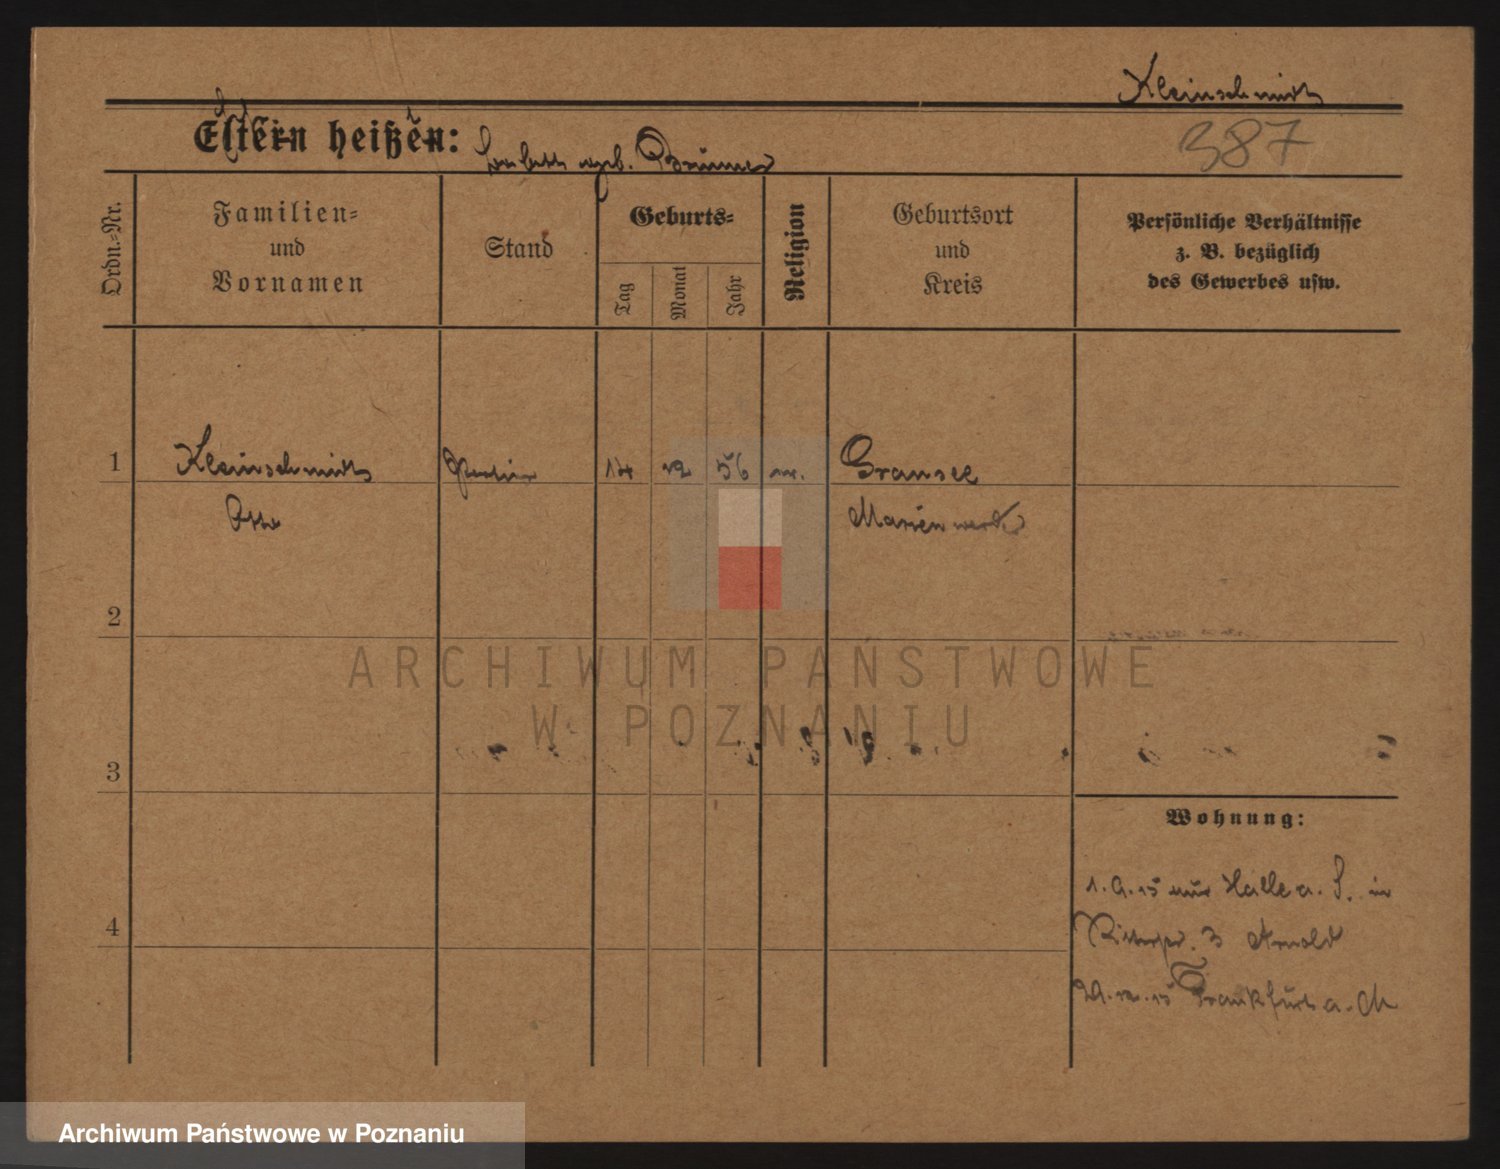 Kleinschmidt
387
Eltern heißen: geb. Brünner
Ordn.-Nr.
Familien-
und
Vornamen
Stand
Geburts-
Tag
Monat
Jahr
Religion
Geburtsort
und
Kreis
Persönliche Verhältnisse
z. B. bezüglich
des Gewerbes usw.
1
Kleinschmidt
14
12
56
Gransee
Otto
Marienwerder
2
ARCHIWUM PAŃSTWOWE
W POZNANIU
3
Wohnung:
1.9.15 Halle a. S. in
3 Arnold
4
15 Frankfurt a. M
Archiwum Państwowe w Poznaniu